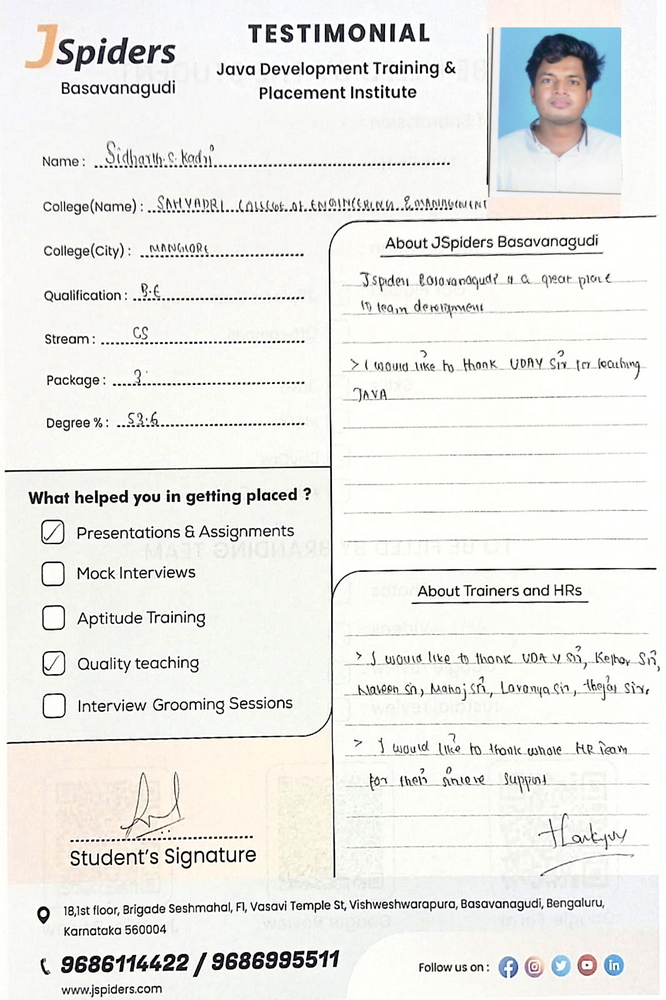 JSpiders
Basavanagudi
TESTIMONIAL
Java Development Training &
Placement Institute
Name : Sidharth.S.Kadri
College(Name) : SAHYADRI COLLEGE OF ENGINEERING & MANAGEMENT
College(City) : MANGLORE
Qualification : B.E
Stream : CS
Package : 3
Degree % : 53.6
What helped you in getting placed ?
Presentations & Assignments
Mock Interviews
Aptitude Training
Quality teaching
Interview Grooming Sessions
Student's Signature
About JSpiders Basavanagudi
Jspiders Basavanagudi is a great place
to learn development
> I would like to thank UDAY Sir for teaching
JAVA
About Trainers and HRs
> I would like to thank UDAY Sir, Keshav Sir,
Naveen Sir, Manoj Sir, Lavanya Sir, Thejas Sir,
> I would like to thank whole HR Team
for their sincere support
Thankyou
18,1st floor, Brigade Seshmahal, Fl, Vasavi Temple St, Vishweshwarapura, Basavanagudi, Bengaluru,
Karnataka 560004
9686114422 / 9686995511
www.jspiders.com
Follow us on :